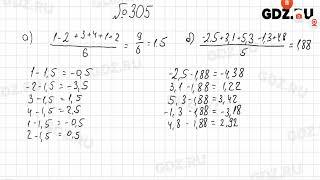 GDZ.RU
№305
а) (1-2+3+4+1+2)/6 = 9/6 = 1.5
б) (-2,5+3,1+5,3-1,3+4,8)/5 = 1.88
1-1,5 = -0,5
-2-1,5 = -3,5
3-1,5 = 1,5
4-1,5 = 2,5
1-1,5 = -0,5
2-1,5 = 0,5
-2,5-1,88 = -4,38
3,1-1,88 = 1,22
5,3-1,88 = 3,42
-1,3-1,88 = -3,18
4,8-1,88 = 2,92